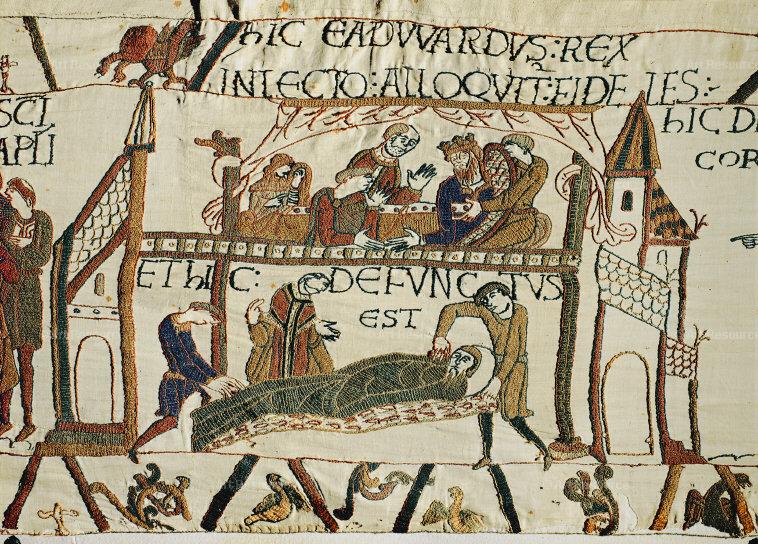 HIC EADVVARDVS:REX
IN LECTO:ALLOQVIT:FIDELES:
SCI
APLI
HIC D
COR
ET hIC: DEFVNCTVS
EST